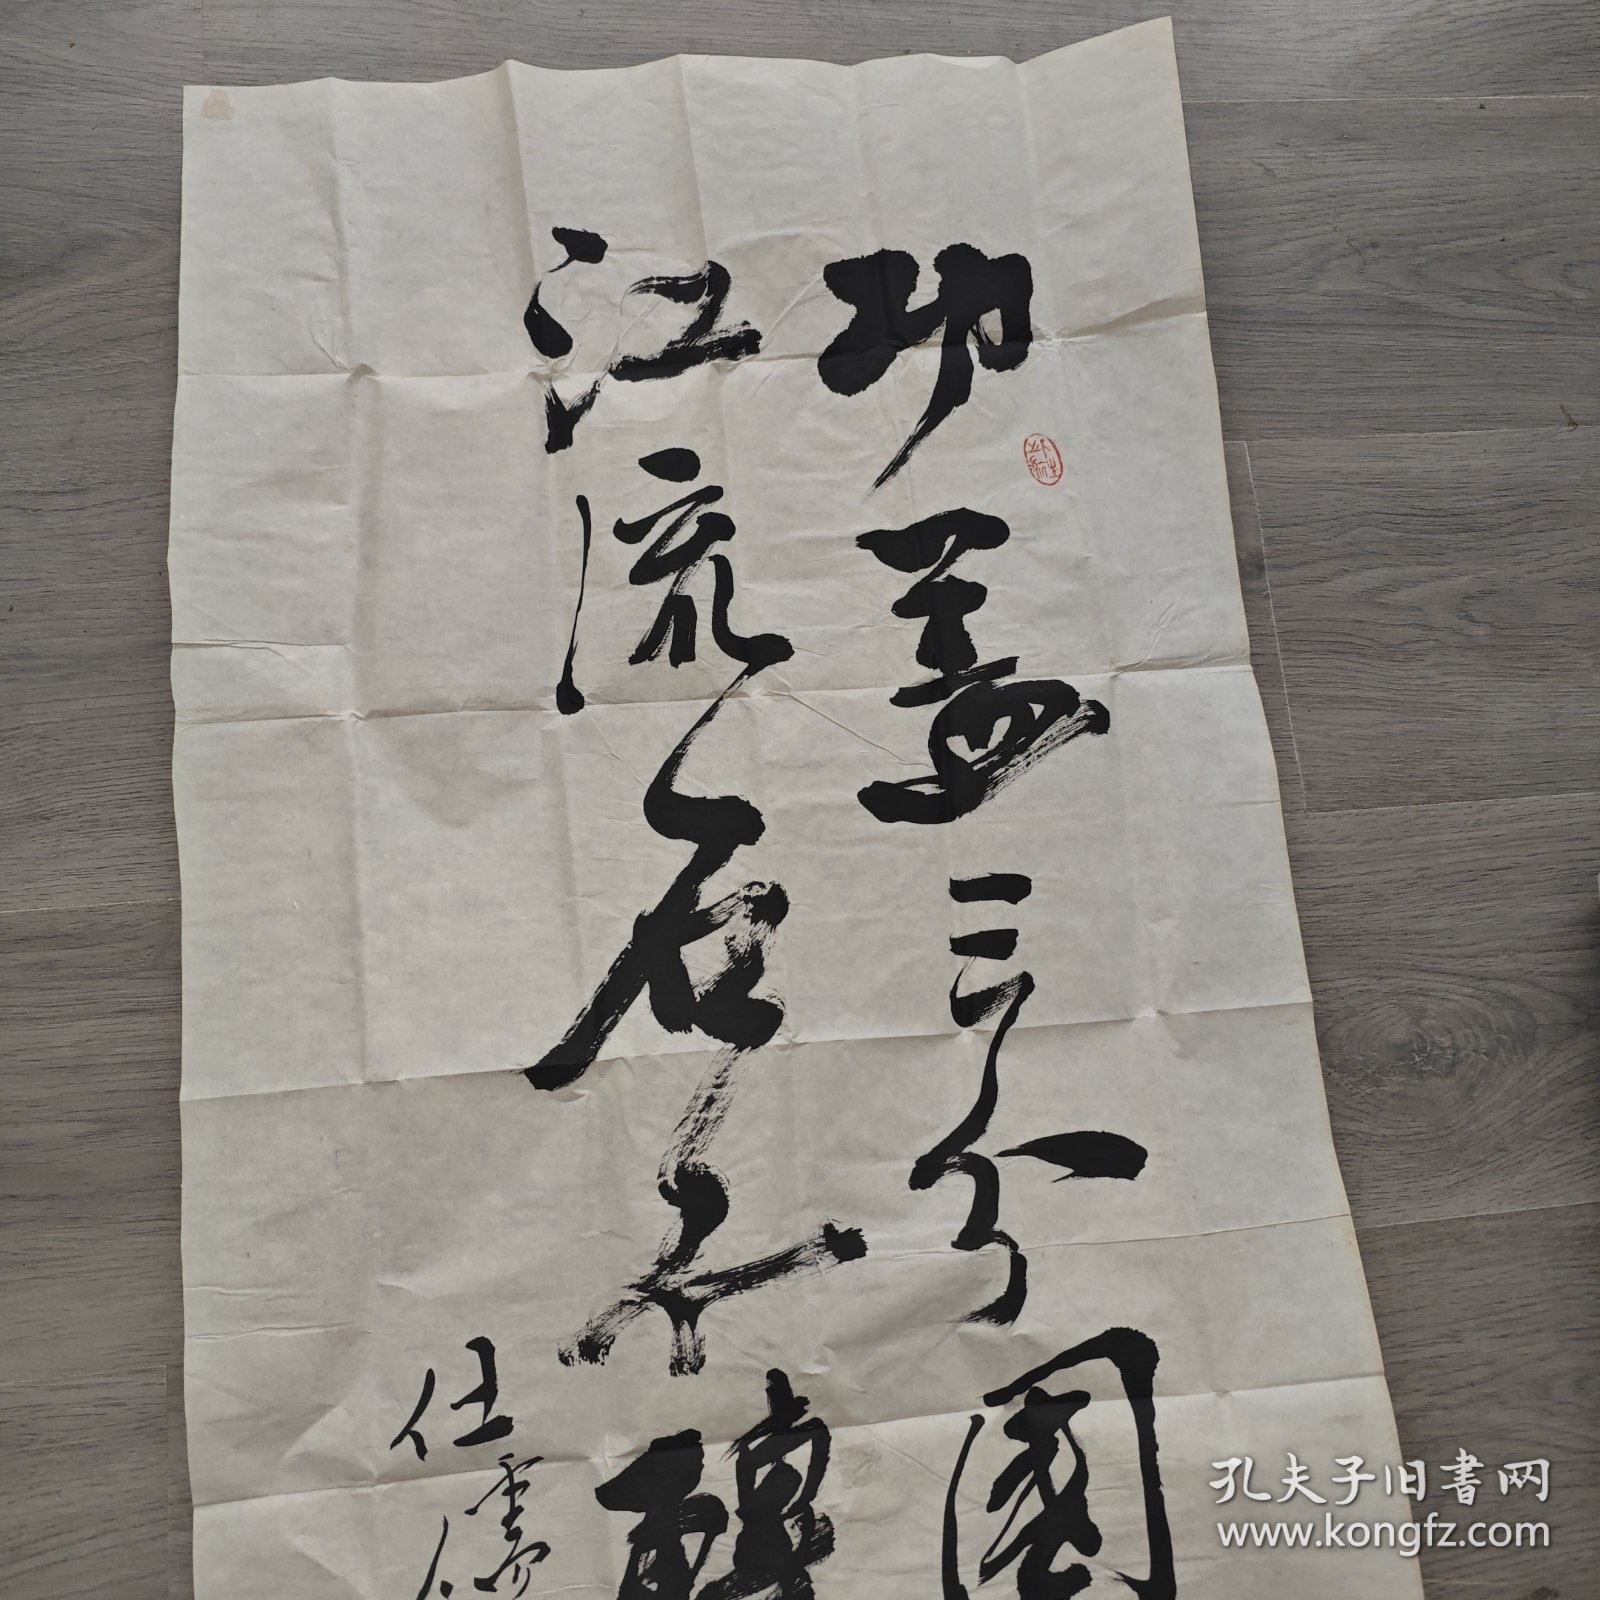 功盖三分國
江流石不轉
仕儒
孔夫子旧书网
www.kongfz.com